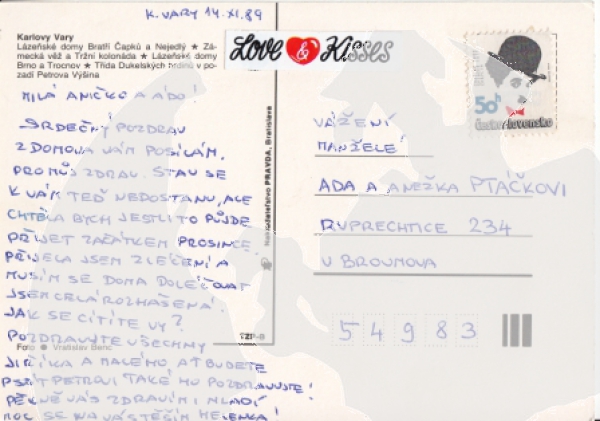 K. VARY 14.XI.89
Karlovy Vary
Lázeňské domy Bratří Čapků a Nejedlý ★ Zá-
mecká věž a Tržní kolonáda ★ Lázeňské domy
Brno a Trocnov ★ Třída Dukelských hrdinů v po-
zadí Petrova Výšina
Love & Kisses
MILÁ ANIČKO A ÁĎO!
SRDEČNÝ POZDRAV
Z DOMOVA VÁM POSÍLÁM.
PRO MŮJ ZDRAV. STAV SE
K VÁM TEĎ NEDOSTANU, ALE
CHTĚLA BYCH JESTLI TO PŮJDE
PŘIJET ZAČÁTKEM PROSINCE.
PŘIJELA JSEM Z LÉČENÍ A
MUSÍM SE DOMA DOLÉČOVAT
JSEM CELÁ ROZHAŠENÁ!
JAK SE CÍTÍTE VY?
POZDRAVUJTE VŠECHNY
JIŘÍKA A MALÉHO, AŤ BUDETE
PSÁT PETROVI TAKÉ HO POZDRAVUJTE!
PĚKNĚ VÁS ZDRAVÍM I MLADÍ
MOC SE NA VÁS TĚŠÍM HELENKA!
Foto ● Vratislav Benc
TZP-8
Nakladateľstvo PRAVDA, Bratislava
50h
Československo
VÁŽENÍ
MANŽELÉ
ADA A ANEŽKA PTÁČKOVI
RUPRECHTICE 234
U BROUMOVA
54983